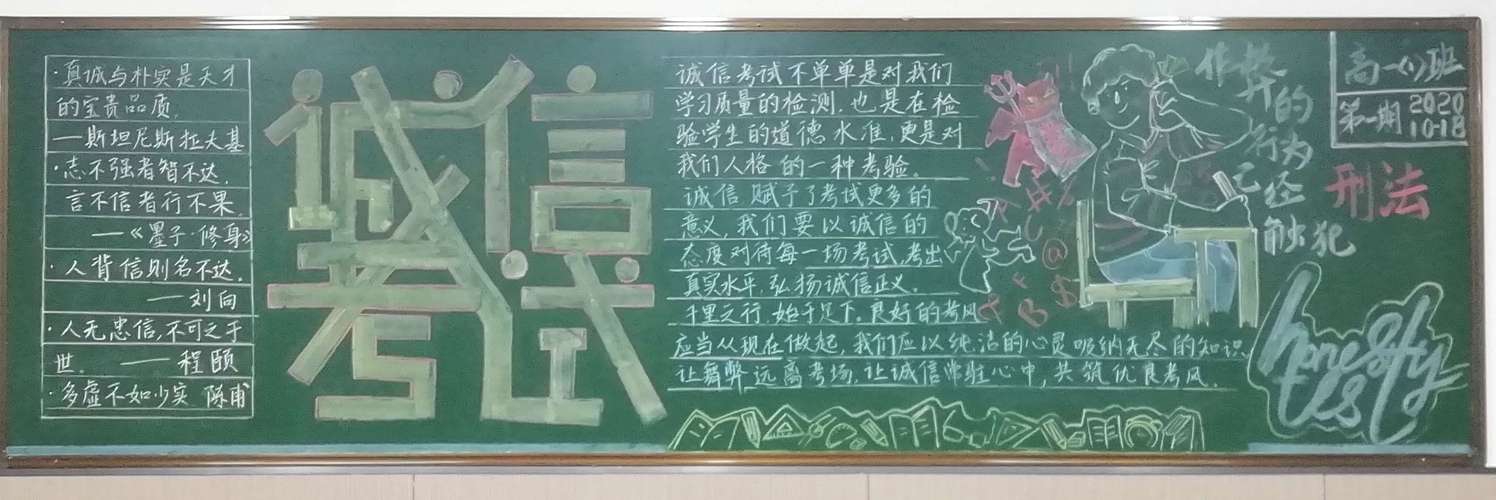 ·真诚与朴实是天才
的宝贵品质.
—斯坦尼斯拉夫基
·志不强者智不达,
言不信者行不果.
—《墨子·修身》
·人背信则名不达.
—刘向
·人无忠信,不可立于
世. —程颐
·多虚不如少实 陈甫
诚信
考试
诚信考试不单单是对我们
学习质量的检测.也是在检
验学生的道德水准,更是对
我们人格的一种考验。
诚信赋予了考试更多的
意义,我们要以诚信的
态度对待每一场考试,考出
真实水平,弘扬诚信正义.
千里之行,始于足下。良好的考风
应当从现在做起,我们应以纯洁的心灵吸纳无尽的知识
让舞弊远离考场,让诚信常驻心中,共筑优良考风.
作弊的
行为
已经
触犯
刑法
高一(1)班
第一期 2020
10·18
honesty